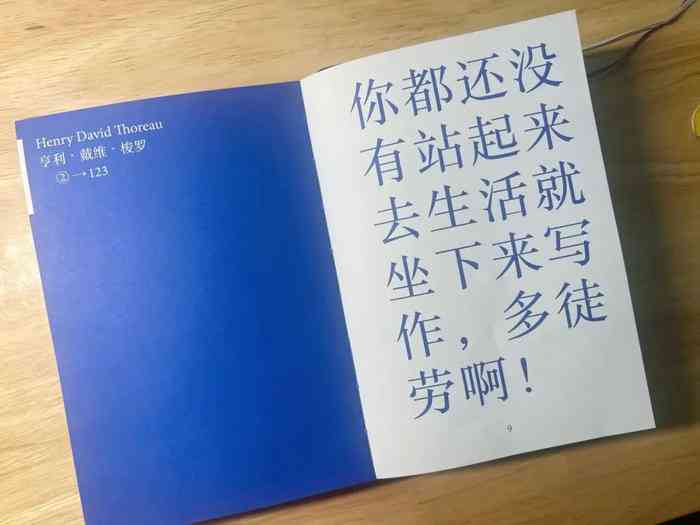 Henry David Thoreau
亨利·戴维·梭罗
②→123
你都还没
有站起来
去生活就
坐下来写
作，多徒
劳啊！
9